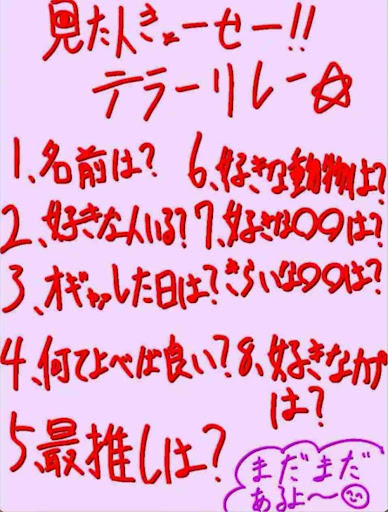 見た人きょーせー!!
テラーリレー☆
1、名前は?
2、好きな人いる?
3、オギャッした日は?
4、何てよべば良い?
5、最推しは?
6、好きな動物は?
7、好きな〇〇は?
きらいな〇〇は?
8、好きなカプ
は?
まだまだ
あるよ〜